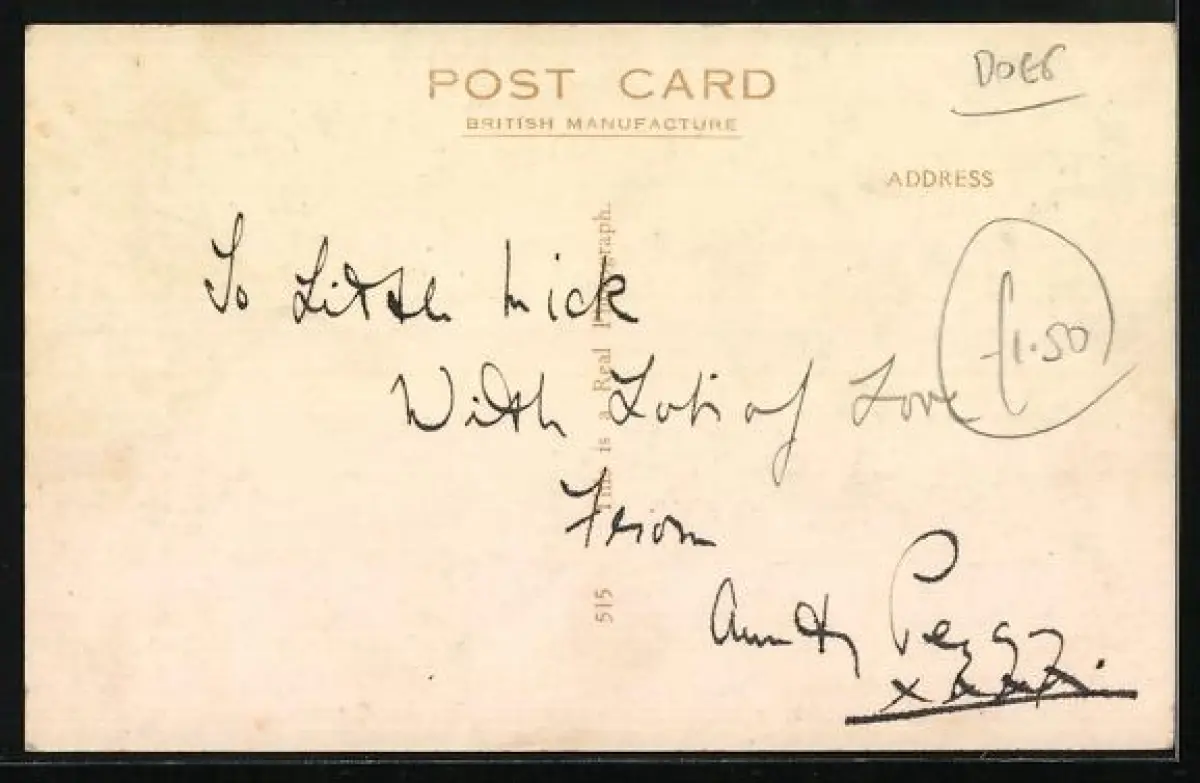 POST CARD
BRITISH MANUFACTURE
DOGS
ADDRESS
To Little Mick
£1.50
With Lots of Love
From
Aunty Peggy
xxxx
This is a Real Photograph.
515